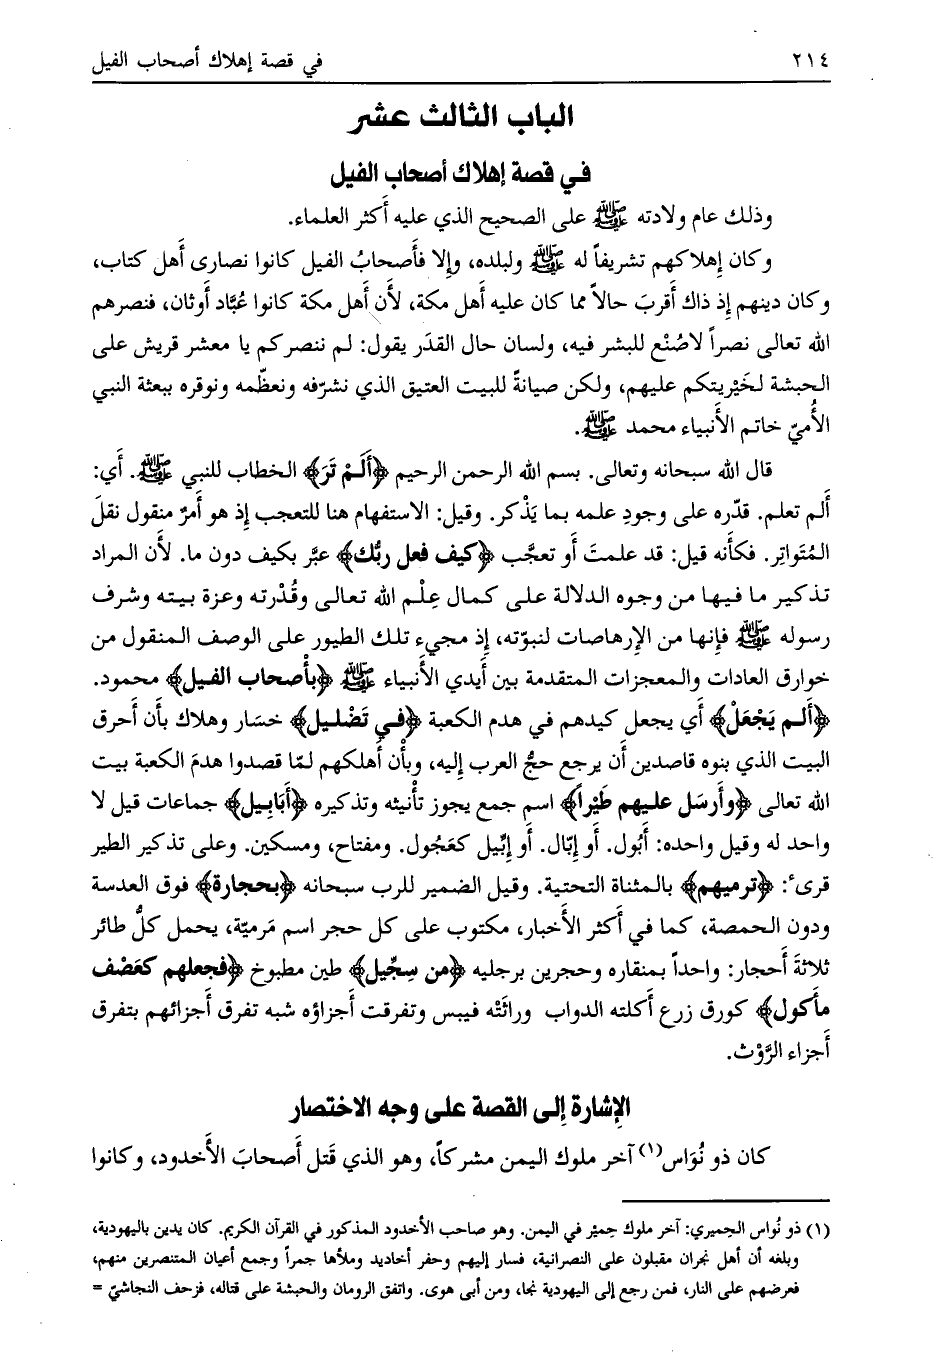 ٢١٤ في قصة إهلاك أصحاب الفيل
الباب الثالث عشر
في قصة إهلاك أصحاب الفيل
وذلك عام ولادته ﷺ على الصحيح الذي عليه أَكثر العلماء.
وكان إِهلاكهم تشريفاً له ﷺ ولبلده، وإِلا فأَصحابُ الفيل كانوا نصارى أَهل كتاب،
وكان دينهم إِذ ذاك أَقربَ حالاً مما كان عليه أَهل مكة، لأَن أَهل مكة كانوا عُبَّاد أَوثان، فنصرهم
الله تعالى نصراً لاصُنْع للبشر فيه، ولسان حال القدَر يقول: لم ننصركم يا معشر قريش على
الحبشة لخَيْريتكم عليهم، ولكن صيانةً للبيت العتيق الذي نشرّفه ونعظّمه ونوقره ببعثة النبي
الأُميّ خاتم الأنبياء محمد ﷺ.
قال الله سبحانه وتعالى. بسم الله الرحمن الرحيم ﴿أَلَمْ تَرَ﴾ الخطاب للنبي ﷺ. أَي:
أَلم تعلم. قدّره على وجودِ علمه بما يَذْكر. وقيل: الاستفهام هنا للتعجب إِذ هو أَمرٌ منقول نقلَ
المُتَواتِر. فكأَنه قيل: قد علمتَ أَو تعجَّب ﴿كيف فعل ربُّك﴾ عبَّر بكيف دون ما. لأَن المراد
تذكير ما فيها من وجوه الدلالة على كمال عِلْم الله تعالى وقُدْرته وعزة بيته وشرف
رسوله ﷺ فإِنها من الإِرهاصات لنبوّته، إِذ مجيء تلك الطيور على الوصف المنقول من
خوارق العادات والمعجزات المتقدمة بين أَيدي الأَنبياء ﷺ ﴿بأَصحاب الفيل﴾ محمود.
﴿أَلم يَجْعَلْ﴾ أَي يجعل كيدهم في هدم الكعبة ﴿في تَضْليل﴾ خسَار وهلاك بأَن أَحرق
البيت الذي بنوه قاصدين أَن يرجع حجُّ العرب إِليه، وبأَن أَهلكهم لمّا قصدوا هدمَ الكعبة بيت
الله تعالى ﴿وأَرسَل عليهم طَيْراً﴾ اسم جمع يجوز تأْنيثه وتذكيره ﴿أَبَابِيل﴾ جماعات قيل لا
واحد له وقيل واحده: أَبُول. أَو إِبَّال. أَو إِبِّيل كعَجُول. ومفتاح، ومسكين. وعلى تذكير الطير
قرىء: ﴿ترميهم﴾ بالمثناة التحتية. وقيل الضمير للرب سبحانه ﴿بحجارة﴾ فوق العدسة
ودون الحمصة، كما في أَكثر الأَخبار، مكتوب على كل حجر اسم مَرميّة، يحمل كلُّ طائر
ثلاثةَ أَحجار: واحداً بمنقاره وحجرين برجليه ﴿من سِجِّيل﴾ طين مطبوخ ﴿فجعلهم كعَصْف
مأكول﴾ كورق زرع أَكلته الدواب وراثَتْه فيبس وتفرقت أَجزاؤه شبه تفرق أَجزائهم بتفرق
أَجزاء الرَّوْث.
الإِشارة إِلى القصة على وجه الاختصار
كان ذو نُوَاس(١) آخر ملوك اليمن مشركاً، وهو الذي قَتل أَصحابَ الأَخدود، وكانوا
(١) ذو نُواس الحِميري: آخر ملوك حِميْر في اليمن. وهو صاحب الأخدود المذكور في القرآن الكريم. كان يدين باليهودية،
وبلغه أن أهل نجران مقبلون على النصرانية، فسار إليهم وحفر أخاديد وملأها جمراً وجمع أعيان المتنصرين منهم،
فعرضهم على النار، فمن رجع إلى اليهودية نجا، ومن أبى هوى. واتفق الرومان والحبشة على قتاله، فزحف النجاشيّ =